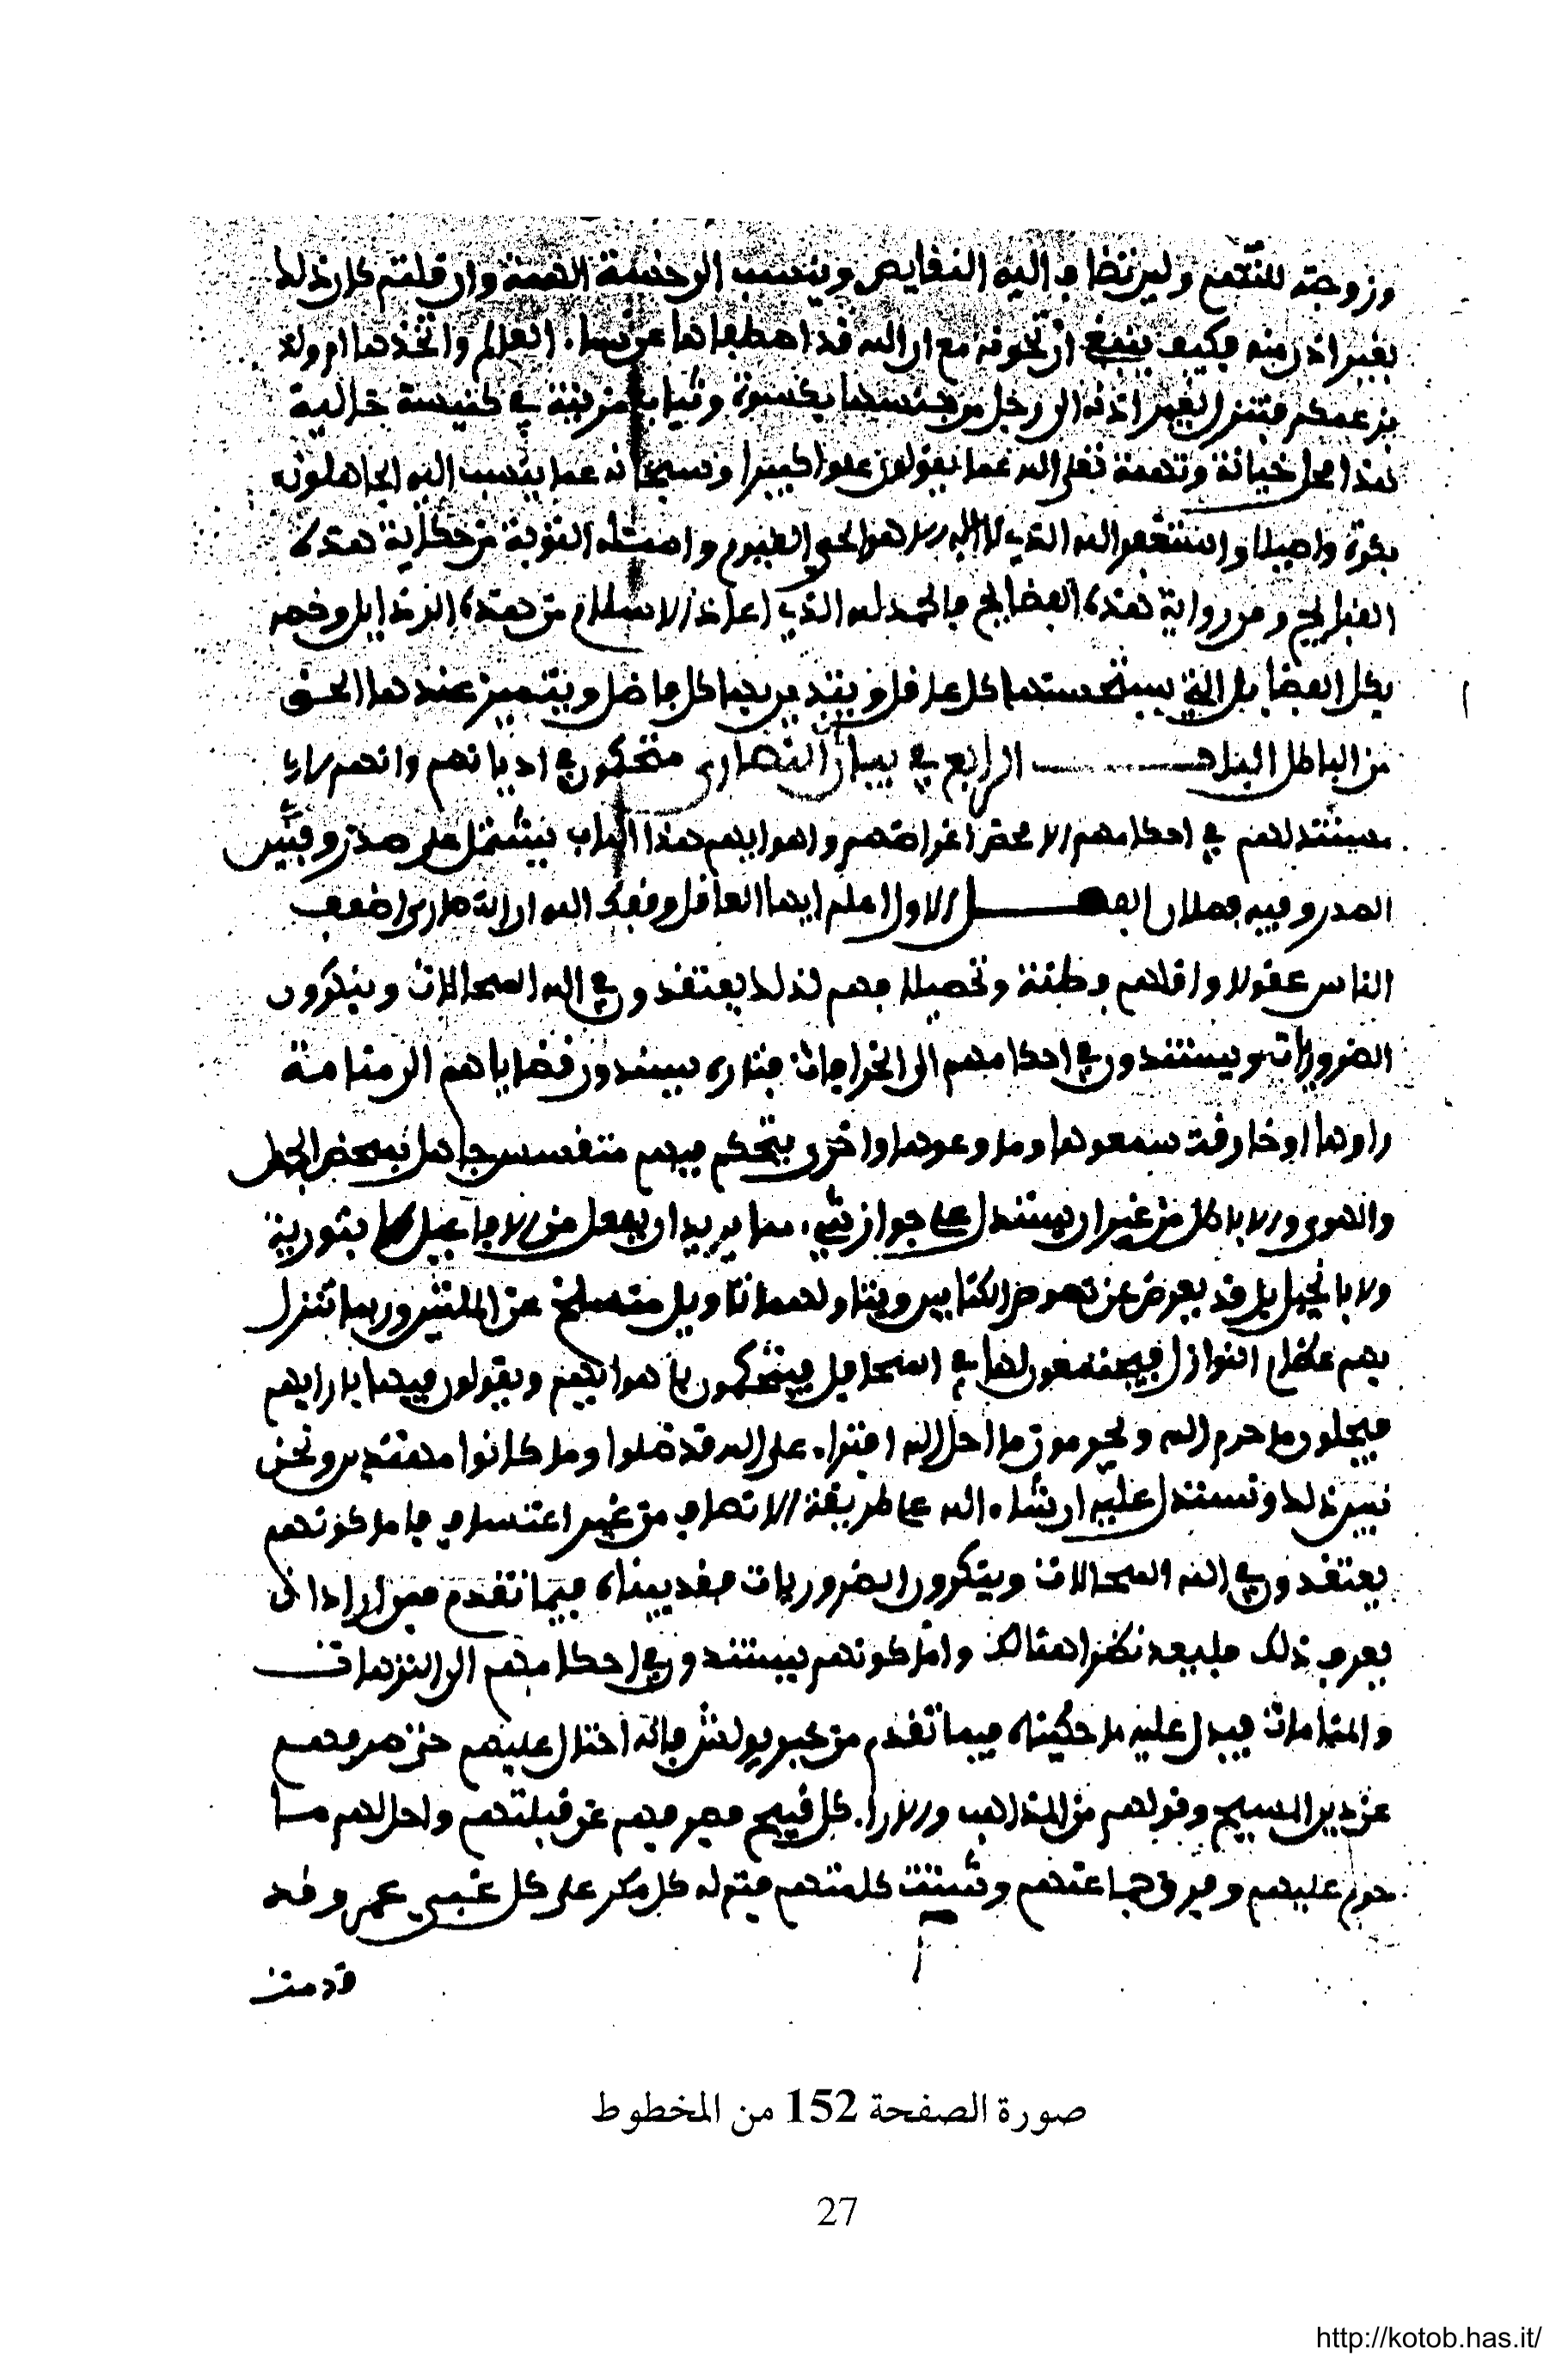 وزوجته للتهم وليرتضاف اليه النقايص وينسب الى خسة الهمة وان قلتم كان ذلك
بغير اذن منه فكيف ينبغي ان تخونه مع ان الله قد اصطفاها على نساء العالم واتخذها ام ولد
بزعمكم فتنزل بغير اذنه الى رجل من جنسها بكسوة وثياب مزينة في كنيسة خالية
هذا محل خيانة وتهمة تعلى الله عما يقولون علوا كبيرا وسبحانه عما ينسب اليه الجاهلون
بكرة واصيلا واستغفر الله الذي لا اله الا هو الحي القيوم واسئله التوبة من حكاية هذه
القبايح ومن رواية هذه الفضايح فالحمد لله الذي اعاذ الاسلام من هذه الرذايل وخصه
بكل الفضايل التي يستحسنها كل عاقل ويتدين بها كل فاضل ويتميز عندها الحق
من الباطل الباب الرابع في بيان ان النصارى متحكمون في اديانهم وانهم لا
مستند لهم في احكامهم الا محض اغراضهم واهوايهم هذا الباب يشتمل على صدر وفنين
الصدر وفيه فصلان الفصل الاول اعلم ايها العاقل وفقك الله ان النصارى اضعف
الناس عقولا واقلهم فطنة وتحصيلا فهم لذلك يعتقدون في الله المحالات وينكرون
الضروريات ويستندون في احكامهم الى الخرافات فتارة يسندون قضاياهم الى منامة
راوها او خارقة سمعوها وما وعوها واخرى يتحكم فيهم متقسس جاهل بمحض الجهل
والهوى والاباطل من غير ان يستدل على جواز شيء مما يريد ان يفعل من الافاعيل لا بتورية
ولا بانجيل بل قد يعرض عن نصوص الكتابين ويتناولهما تاويل منسلخ عن الملتين وربما تنزل
بهم عظام النوازل فيجتمعون لها في المحافل فيتحكمون باهوايهم ويقولون فيها بارايهم
فيحلون ما حرم الله ويحرمون ما احل الله افتراء على الله قد ضلوا وما كانوا مهتدين ونحن
نبين ذلك ونستدل عليه ان شاء الله على طريقة الانصاف من غير اعتساف فاما كونهم
يعتقدون في الله المحالات وينكرون الضروريات فقد بيناه فيما تقدم فمن اراد ان
يعرف ذلك فليعد نظرا هنالك واما كونهم يستندون في احكامهم الى الترهات
والمنامات فيدل عليه ما حكيناه فيما تقدم من خبر بولش فانه احتال عليهم حتى صرفهم
عن دين المسيح وقولهم من المذاهب والاراء كل قبيح فصرفهم عن قبلتهم واحل لهم ما
حرم عليهم وفرق جماعتهم وشتت كلمتهم فتم له كل مكر على كل غبي غمر وقد
قدمت
صورة الصفحة 152 من المخطوط
27
http://kotob.has.it/